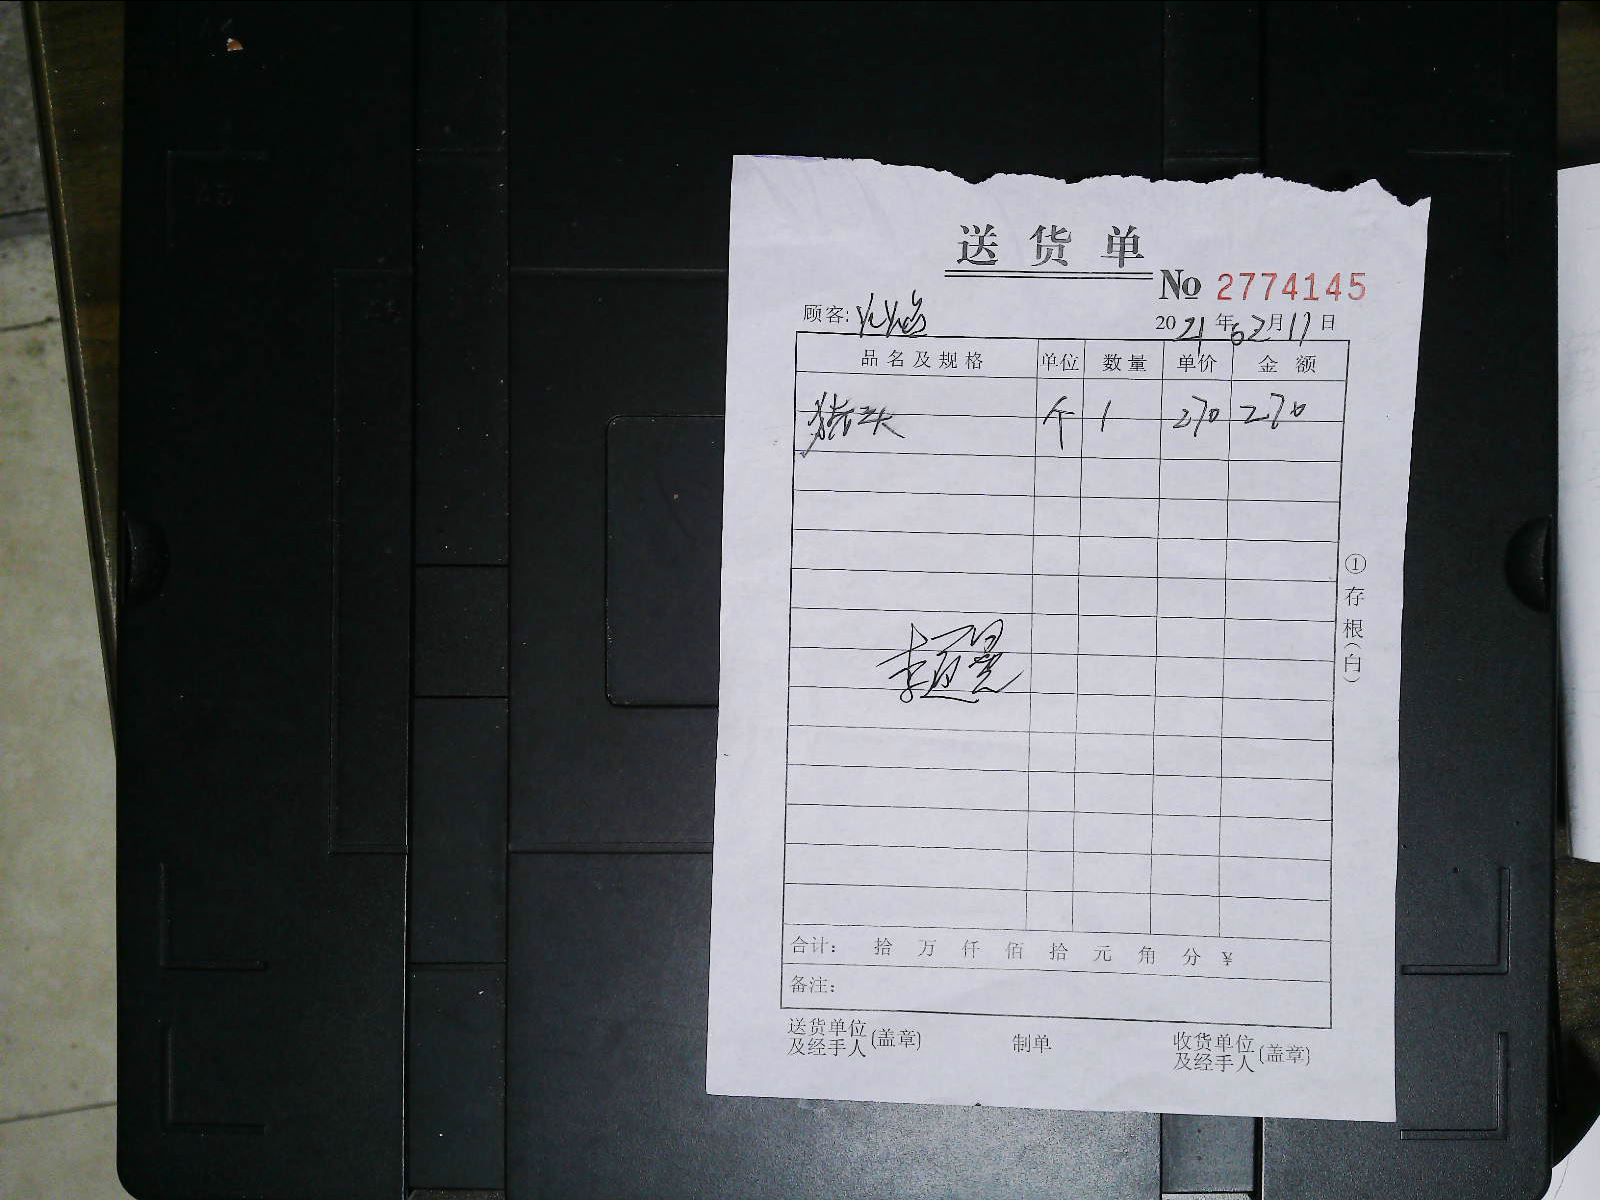 送货单
No 2774145
顾客:
2021年02月17日
品名及规格 单位 数量 单价 金额
个 1 270 270
①存根(白)
合计: 拾 万 仟 佰 拾 元 角 分 ¥
备注:
送货单位及经手人(盖章) 制单 收货单位及经手人(盖章)